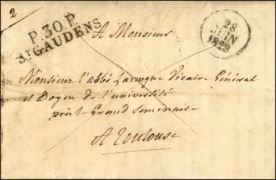 2
P.30.P.
ST GAUDENS
28
JUIN
1829
A Monsieur
Monsieur l'abbé Vicaire Général
et Doyen de l'université
près le Grand Seminaire
A Toulouse